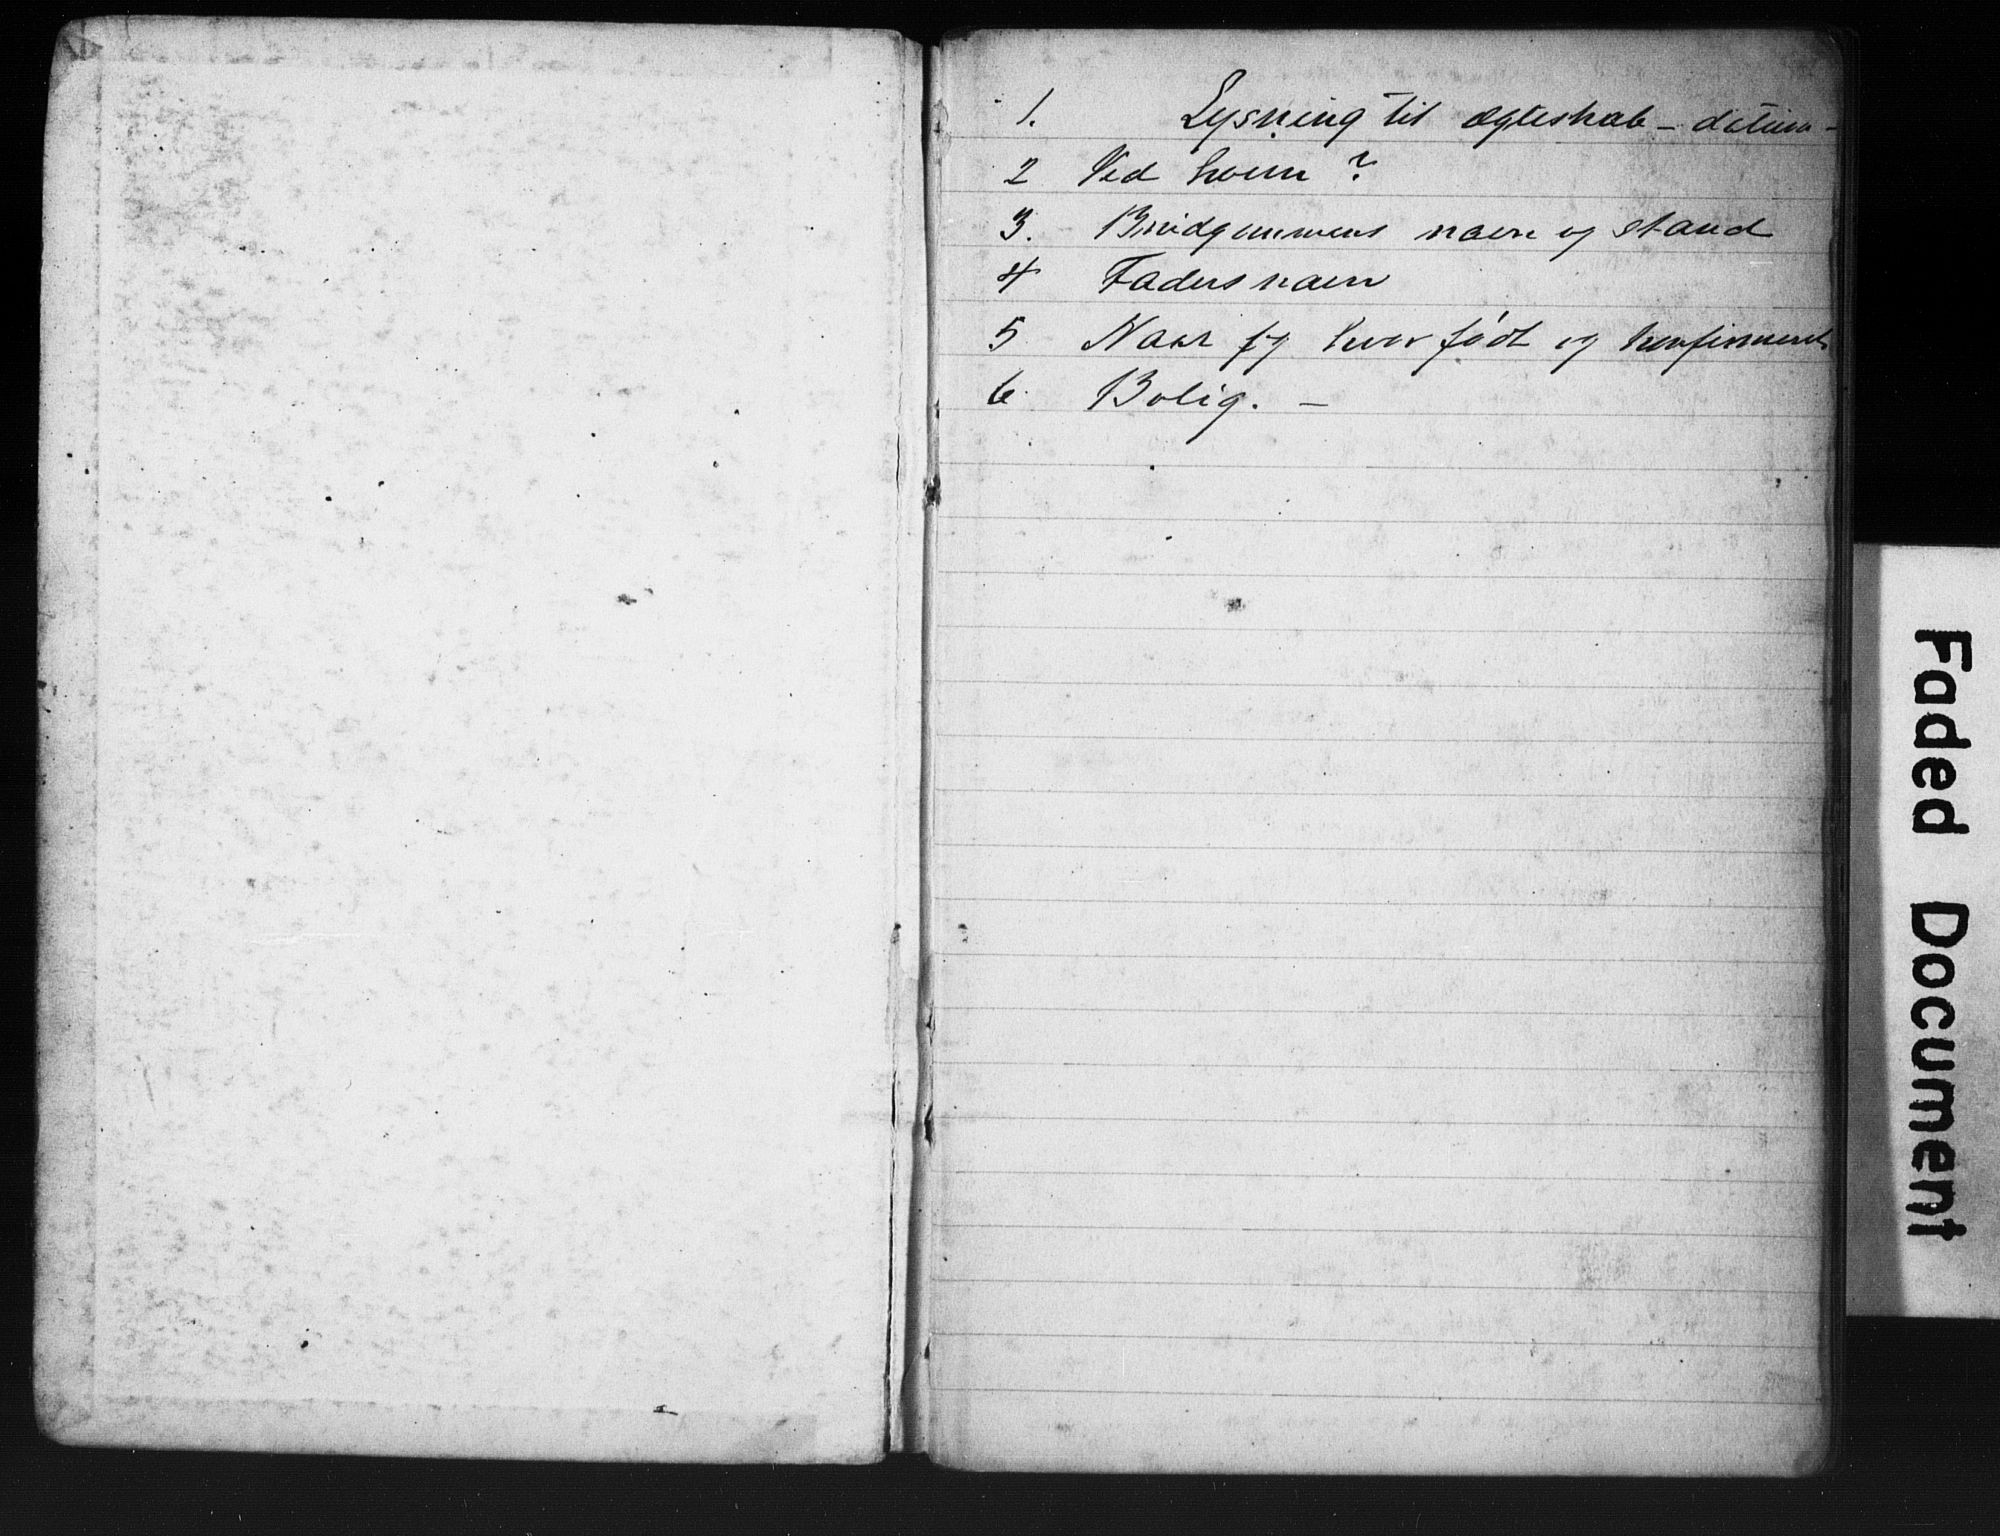 1. Lysning til ægteskab – datum –
2 Ved hvem?
3. Brudgummens navn og stand
4 Faders navn
5 Naar og hvor født og konfirmeret
6. Bolig. –
Faded Document